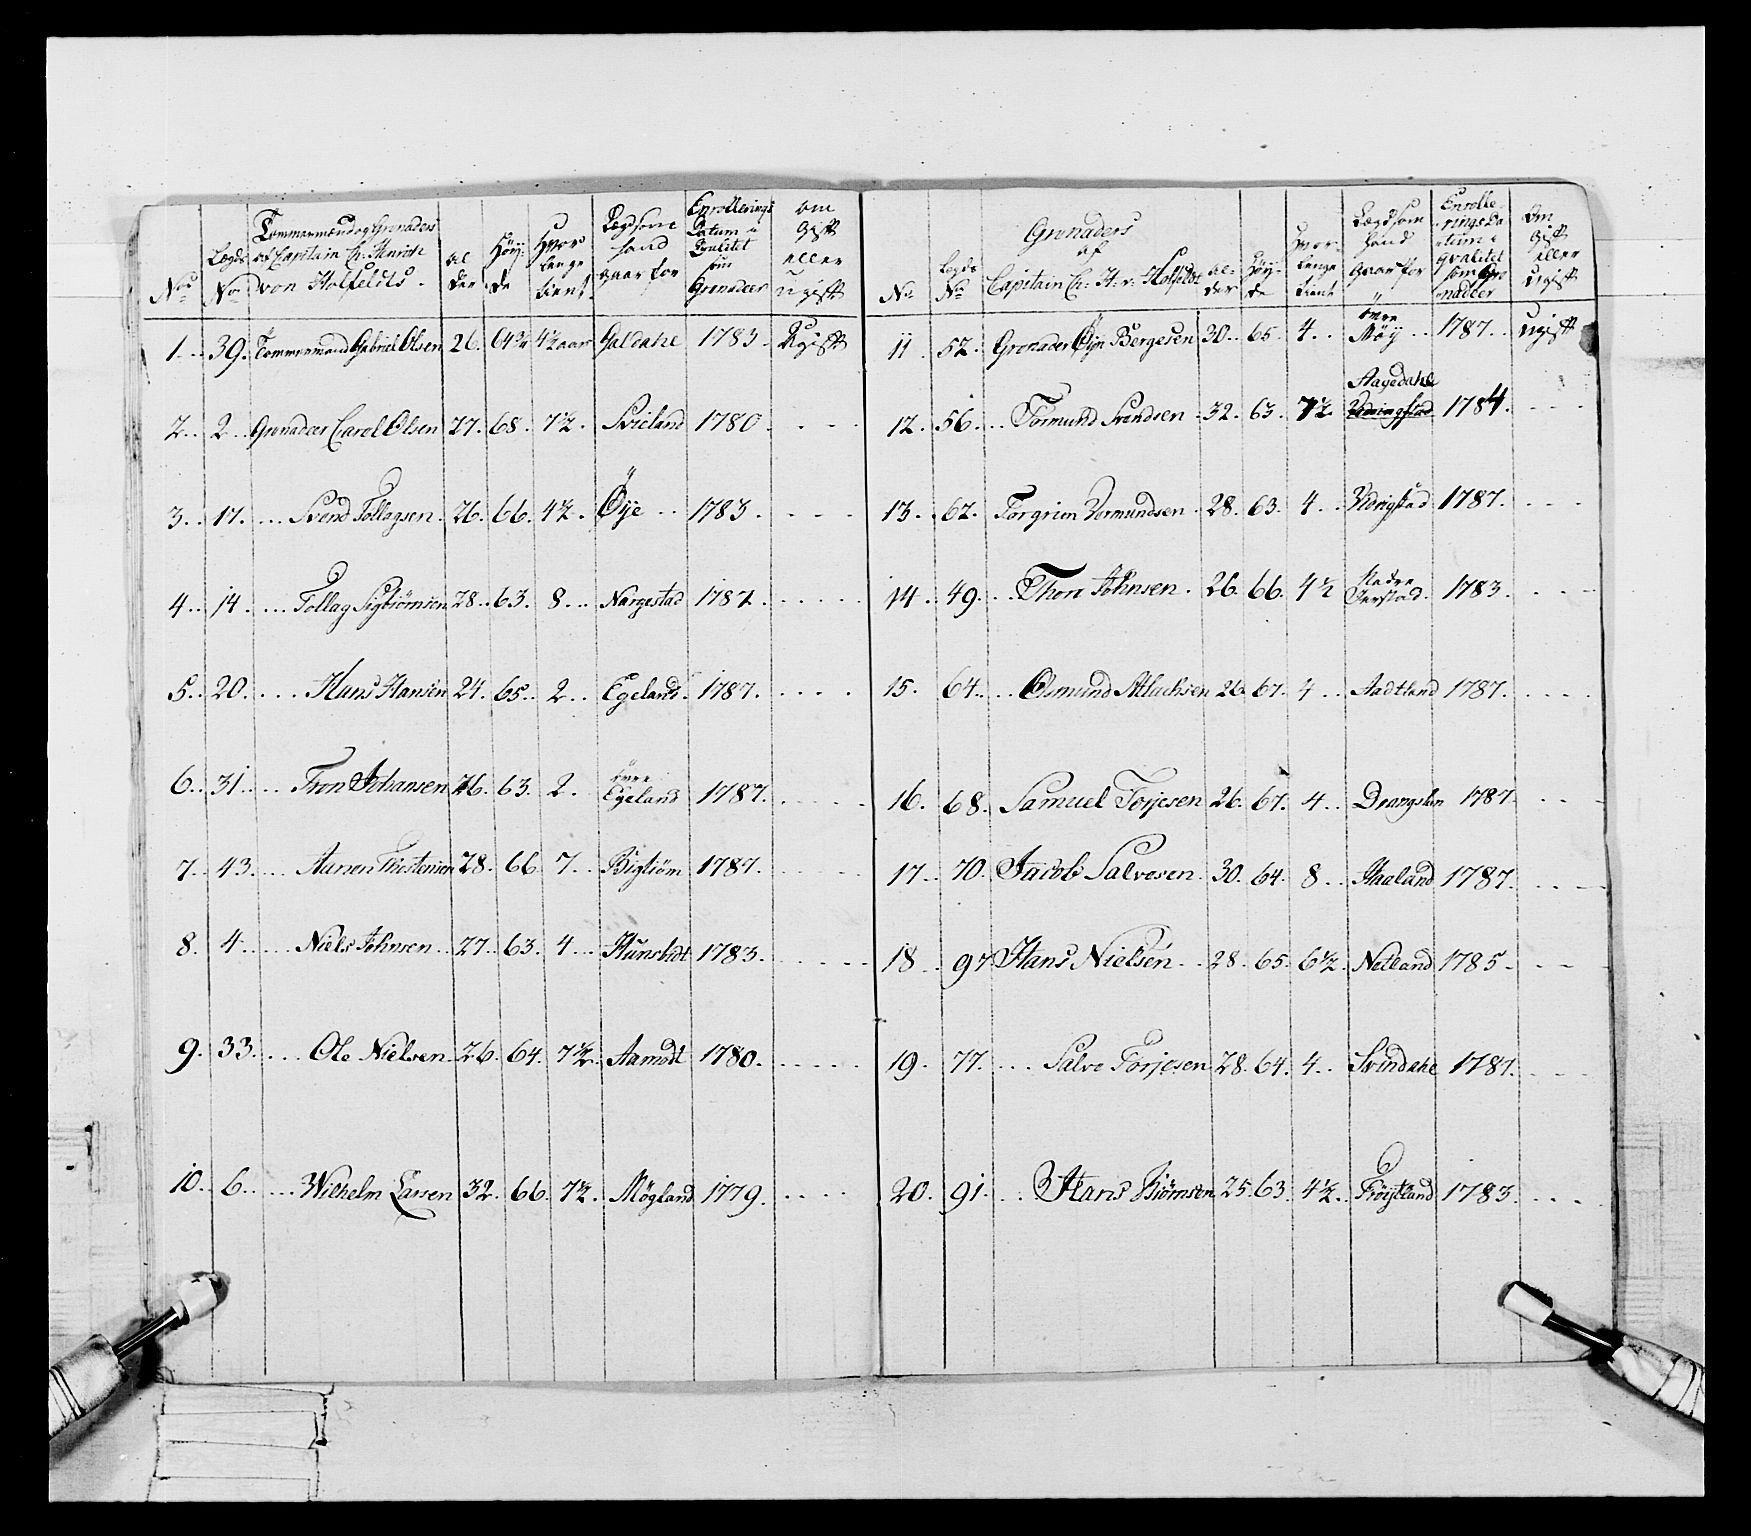 No
Legds No
Tømmermænd og Grenaders
af Capitain Ch: Henrich
von Holfeldts
Alder
Høyde
Hvor længe tient
Lægd som hand gaar for
Enrollerings Datum i Qvalitet som Grenadeer
om Gift eller ugift
1. 39. Tømmermand Gabriel Olsen 26. 64¾ 4½ aar Galdahl 1783. Ugift
2. 2. Grenadeer Carel Olsen 27. 68. 7½. Svieland 1780. - - -
3. 17. Svend Tollagsen. 26. 66. 4½. Øye 1783. - - -
4. 14. Tollag Sigbiørnsen 28. 63. 8. Nargestad 1787. - - -
5. 20. Hans Hansen 24. 65. 2. Egeland. 1787. - - -
6. 31. Tron Johansen 26. 63. 2. øvre Egeland 1787. - - -
7. 43. Aanen Thostensen 28. 66 7. Bigtiøm 1787. - - -
8. 4. Niels Johnsen 27. 63. 4. Hunsbdt 1783. - - -
9. 33. Ole Nielsen 26. 64. 7½. Aamodt 1780. - - -
10. 6. Wilhelm Larsen 32. 66. 7½. Møgland 1779. - - -
No
Legds No
Grenaders
af
Capitain Ch: H: v: Holfeldt
Alder
Høyde
Hvor længe tient
Lægd som hand gaar for
Enrolleringsdatum i qvalitet som Grenadeer
Om Gift eller ugift
11. 52. Grenader Øyn Bergesen 30. 65. 4. øvre Møy 1787. Ugift
12. 56. Tormund Svendsen 32. 63. 7½ Aagedahl 1784. - - -
13. 62. Torgrim Vormundsen 28. 63. 4. Vidrigstad 1787. - - -
14. 49. Thore Johnsen. 26. 66. 4½ Nedre Jerstad. 1783. - - -
15. 64. Osmund Atlachsen 26. 67. 4 Aadtland 1787. - - -
16. 68. Samuel Torjesen 26. 67. 4. Drangsholm 1787. - - -
17. 70. Jacob Salvesen. 30. 64. 8. Haaland 1787. - - -
18. 97 Hans Nielsen 28. 65. 6½. Netland 1785. - - -
19. 77. Salve Torjesen 28. 64. 4. Svindahl 1787. - - -
20. 91. Hans Biørnsen 25. 63. 4½. Frøytland 1783. - - -